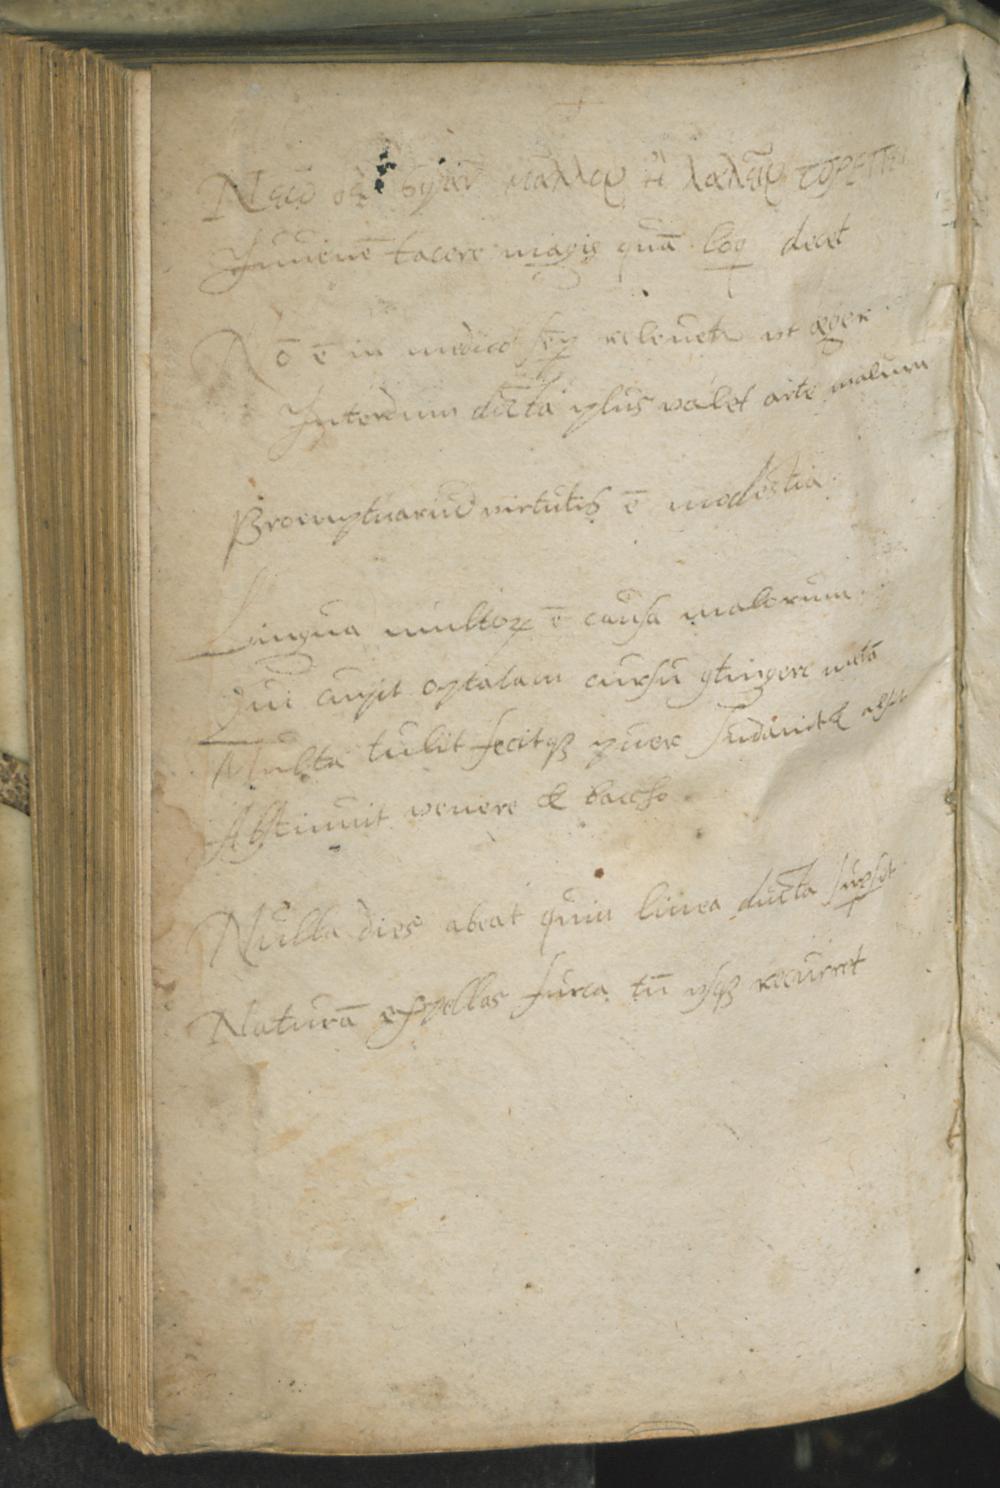 Νεῳ δὲ σιγᾶν μᾶλλον ἢ λαλεῖν πρέπει
Juuenē tacere magis quā loq decet
Nō ē in medico sēp releuetr vt æger
Interdum docta plus valet arte malum
Promptuariū virtutis ē modestia.
Lingua multoꝝ ē causa malorum.
Qui cupit optatam cursū ꝯtingere metā
Multa tulit fecitqꝫ puer sudauit & alsit
Abstinuit venere & baccho.
Nulla dies abeat quin linea ducta supsit
Naturā expellas furca tn̄ vsqꝫ recurret